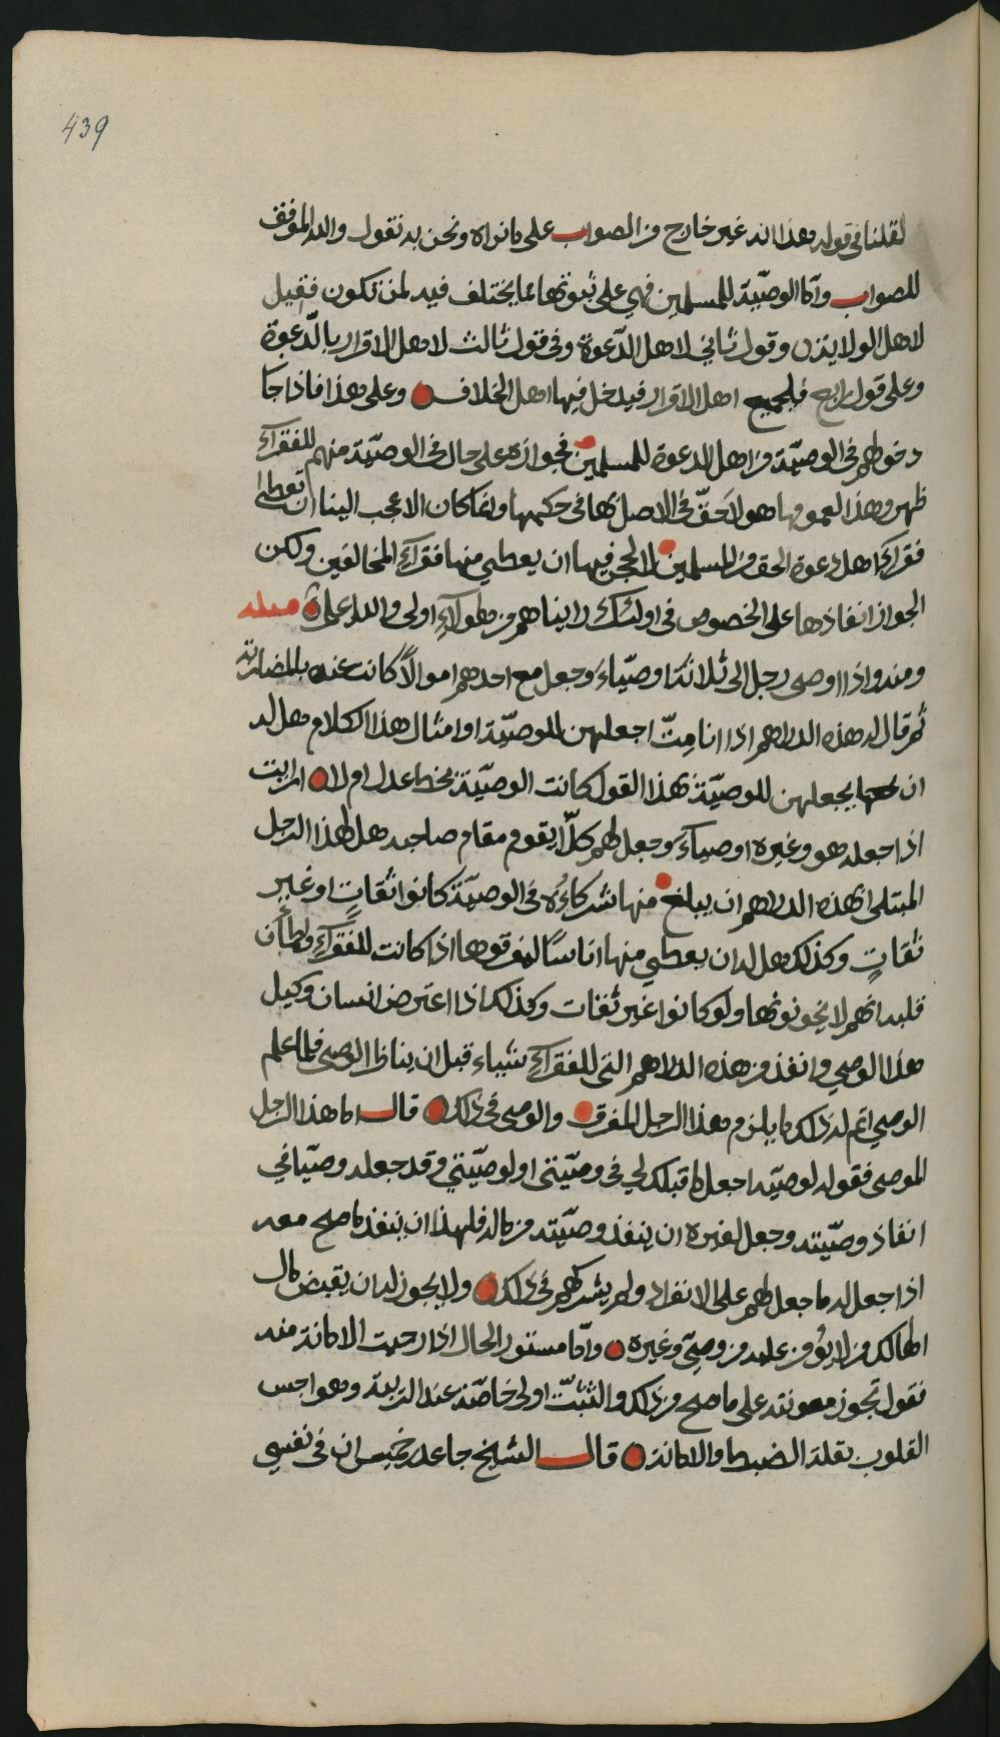 439
لقلنا في قوله هذا انه غير خارج من الصواب على ما نراه ونحن به نقول والله الموفق
للصواب واما الوصيّة للمسلمين فهي على ثبوتها مما يختلف فيه لمن تكون فقيل
لاهل الولاية من وقول ثاني لاهل الدّعوة وفي قول ثالث لاهل الاقرار بالدّعوة
وعلى قول رابع فلجميع اهل الاقرار فيدخل فيها اهل الخلاف وعلى هذا فاذا جا
دخولهم في الوصيّة من اهل الدعوة للمسلمين فجوازه على حال في الوصيّة منهم للفقرآء
ظهر وهذا العموما هو لاحقّ في الاصل بها في حكمها وانما كان الاعجب الينا ان تعطى
فقرآء اهل دعوة الحق من المسلمين لا الحجر فيها ان يعطي منها فقرآء المخالفين ولكن
الجواز انفاذها على الخصوص في اولئك رايناهم من هٰولآءِ اولى والله اعلم مسئلة
ومنه واذا اوصى رجل الى ثلاثة اوصيّاء وجعل مع احدهم اموالاً كانت عنده بالمضاربة
ثم قال له هذه الدراهم اذا انا مِتّ اجعلهن للوصيّة او امثال هذا الكلام هل له
ان يجعلهن للوصيّة بهذا القول كانت الوصيّة بخط عدل ام لا ارايت
اذا جعله هو وغيره اوصياءً وجعل لهم كلّاً يقوم مقام صاحبه هل لهذا الرجل
المبتلى بهذه الدراهم ان يبلغ منها شركاءُه في الوصيّة كانوا ثقاتٍ او غير
ثقاتٍ وكذلك هل له ان يعطي منها اناسًا ليفرقوها اذا كانت للفقرآءِ واطمأن
قلبه انهم لا يخونونها ولو كانوا غير ثقات وكذلك اذا اعترض انسان وكيل
هذا الوصي وانفذ من هذه الدراهم التى للفقرآءِ شيىاء قبل ان يناظر الوصي فلما علم
الوصي اتم له ذلك ما يلزم هذا الرجل المفرق والوصى في ذلك قال اما هذا الرجل
الموصى فقوله لوصيّه اجعل ما قبلك لي في وصيّتى او لوصيّتي وقد جعله وصيّا في
انفاذ وصيّته وجعل لغيره ان ينفذ وصيّته من ماله فلهذا ان ينفذ ما صح معه
اذا جعل له ما جعل لهم على الانفراد ولم يشركهم في ذلك ولا يجوز له ان يقبض مال
الهالك من لا يؤمن عليه من وصيّ وغيره وامّا مستور الحال اذا رجيت الامانة منه
فقول تجوز معونته على ما صح من ذلك والتثبّت اولى خاصّة عند الريبة وهواجس
القلوب بقلة الضبط والامانة قال الشيخ جاعد بن خميس ان في نفسي